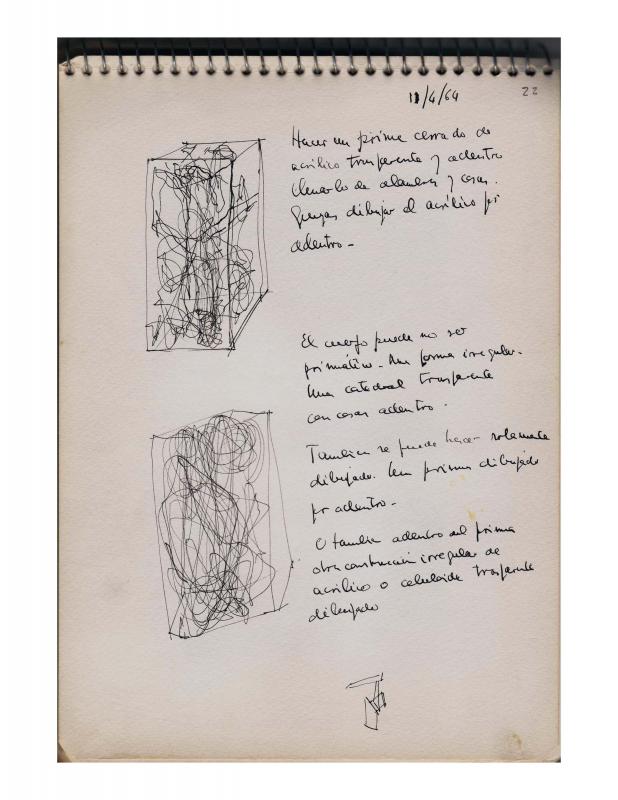 11/4/64
22
Hacer un prisma cerrado de
acrílico trasparente y adentro
llenarlo de alambres y cosas.
Quizas dibujar el acrílico por
adentro -
El cuerpo puede no ser
prismático - Una forma irregular.
Una catedral trasparente
con cosas adentro.
Tambien se puede hacer solamente
dibujado. Un prisma dibujado
por adentro -
O tambien adentro del prisma
otra construcción irregular de
acrílico o celuloide trasparente
dibujado